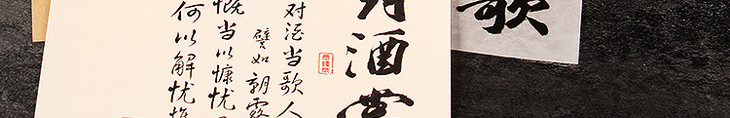 歌
对酒当
对酒当歌人
譬如朝露
慨当以慷忧
何以解忧惟